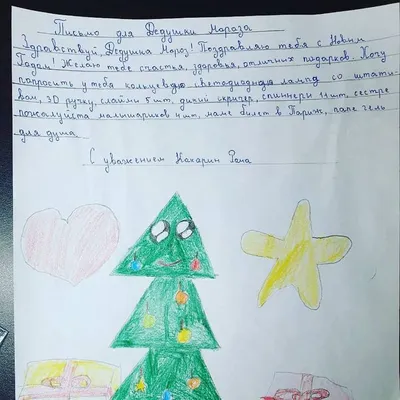 Письмо для Дедушки Мороза
Здравствуй, Дедушка Мороз! Поздравляю тебя с Новым
Годом! Желаю тебе счастья, здоровья, отличных подарков. Хочу
попросить у тебя кольцевую светодиодную лампу со штати-
вом, 3D ручку, слаймы 5 шт, дикий скричер, спиннеры 11 шт, сестре
пожалуйста малышариков 4 шт, маме билет в Париж, папе гель
для душа.
С уважением Кахарин Рома